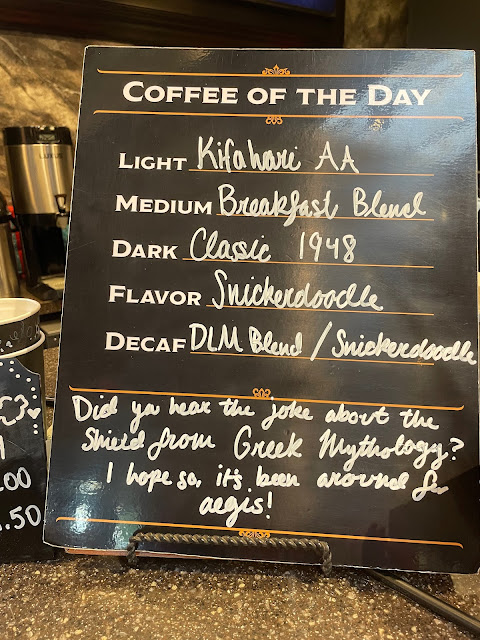 COFFEE OF THE DAY
LIGHT Kifahari AA
MEDIUM Breakfast Blend
DARK Classic 1948
FLAVOR Snickerdoodle
DECAF DLM Blend / Snickerdoodle
Did ya hear the joke about the
Shield from Greek Mythology?
I hope so, it's been around for
aegis!
.00
.50